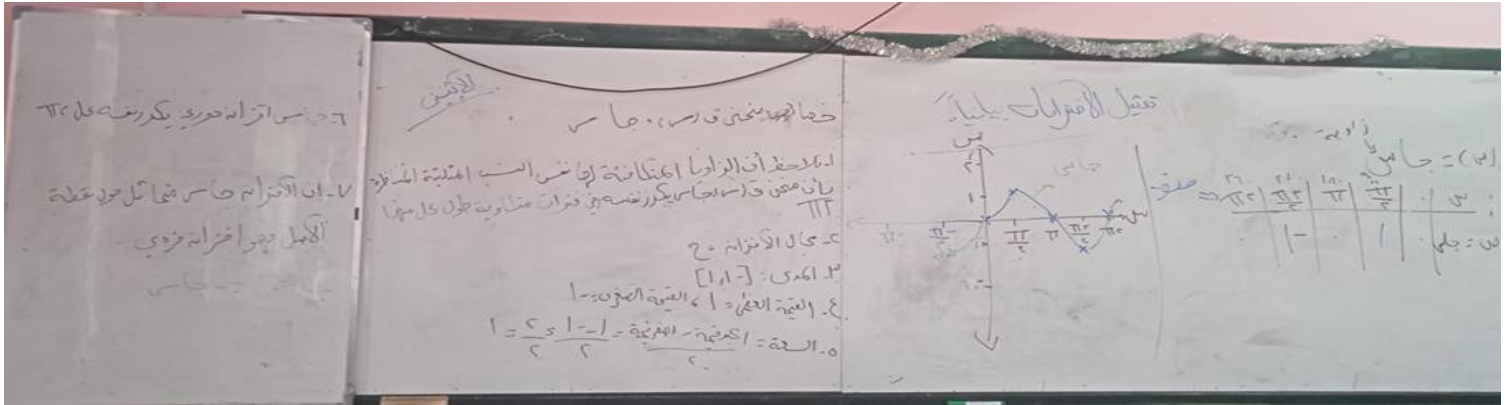 تمثيل الاقترانات بيانياً
(س) = جا س
زاوية
س | ٠ | π/٢ | π | ٣π/٢ | ٢π
ص = جا س | ٠ | ١ | ٠ | -١ | ٠
ص
٢
١
جا س
س
π/٢
π
٣π/٢
٢π
-١
الاثنين
خصائص منحنى ق(س) = جا س
١. نلاحظ أن الزوايا المتكافئة لها نفس النسب المثلثية
بأن منحنى ق(س) = جا س يكرر نفسه في فترات متساوية طول كل منها
٢π
٢. مجال الاقتران = ح
٣. المدى: [-١،١]
٤. القيمة العظمى = ١، القيمة الصغرى = -١
٥. السعة = أكبر قيمة - أصغر قيمة / ٢ = ١ - -١ / ٢ = ٢ / ٢ = ١
٦- جا س اقتران دوري يكرر نفسه كل ٢π
٧- ان الاقتران جا س متماثل حول نقطة
الأصل فهو اقتران فردي